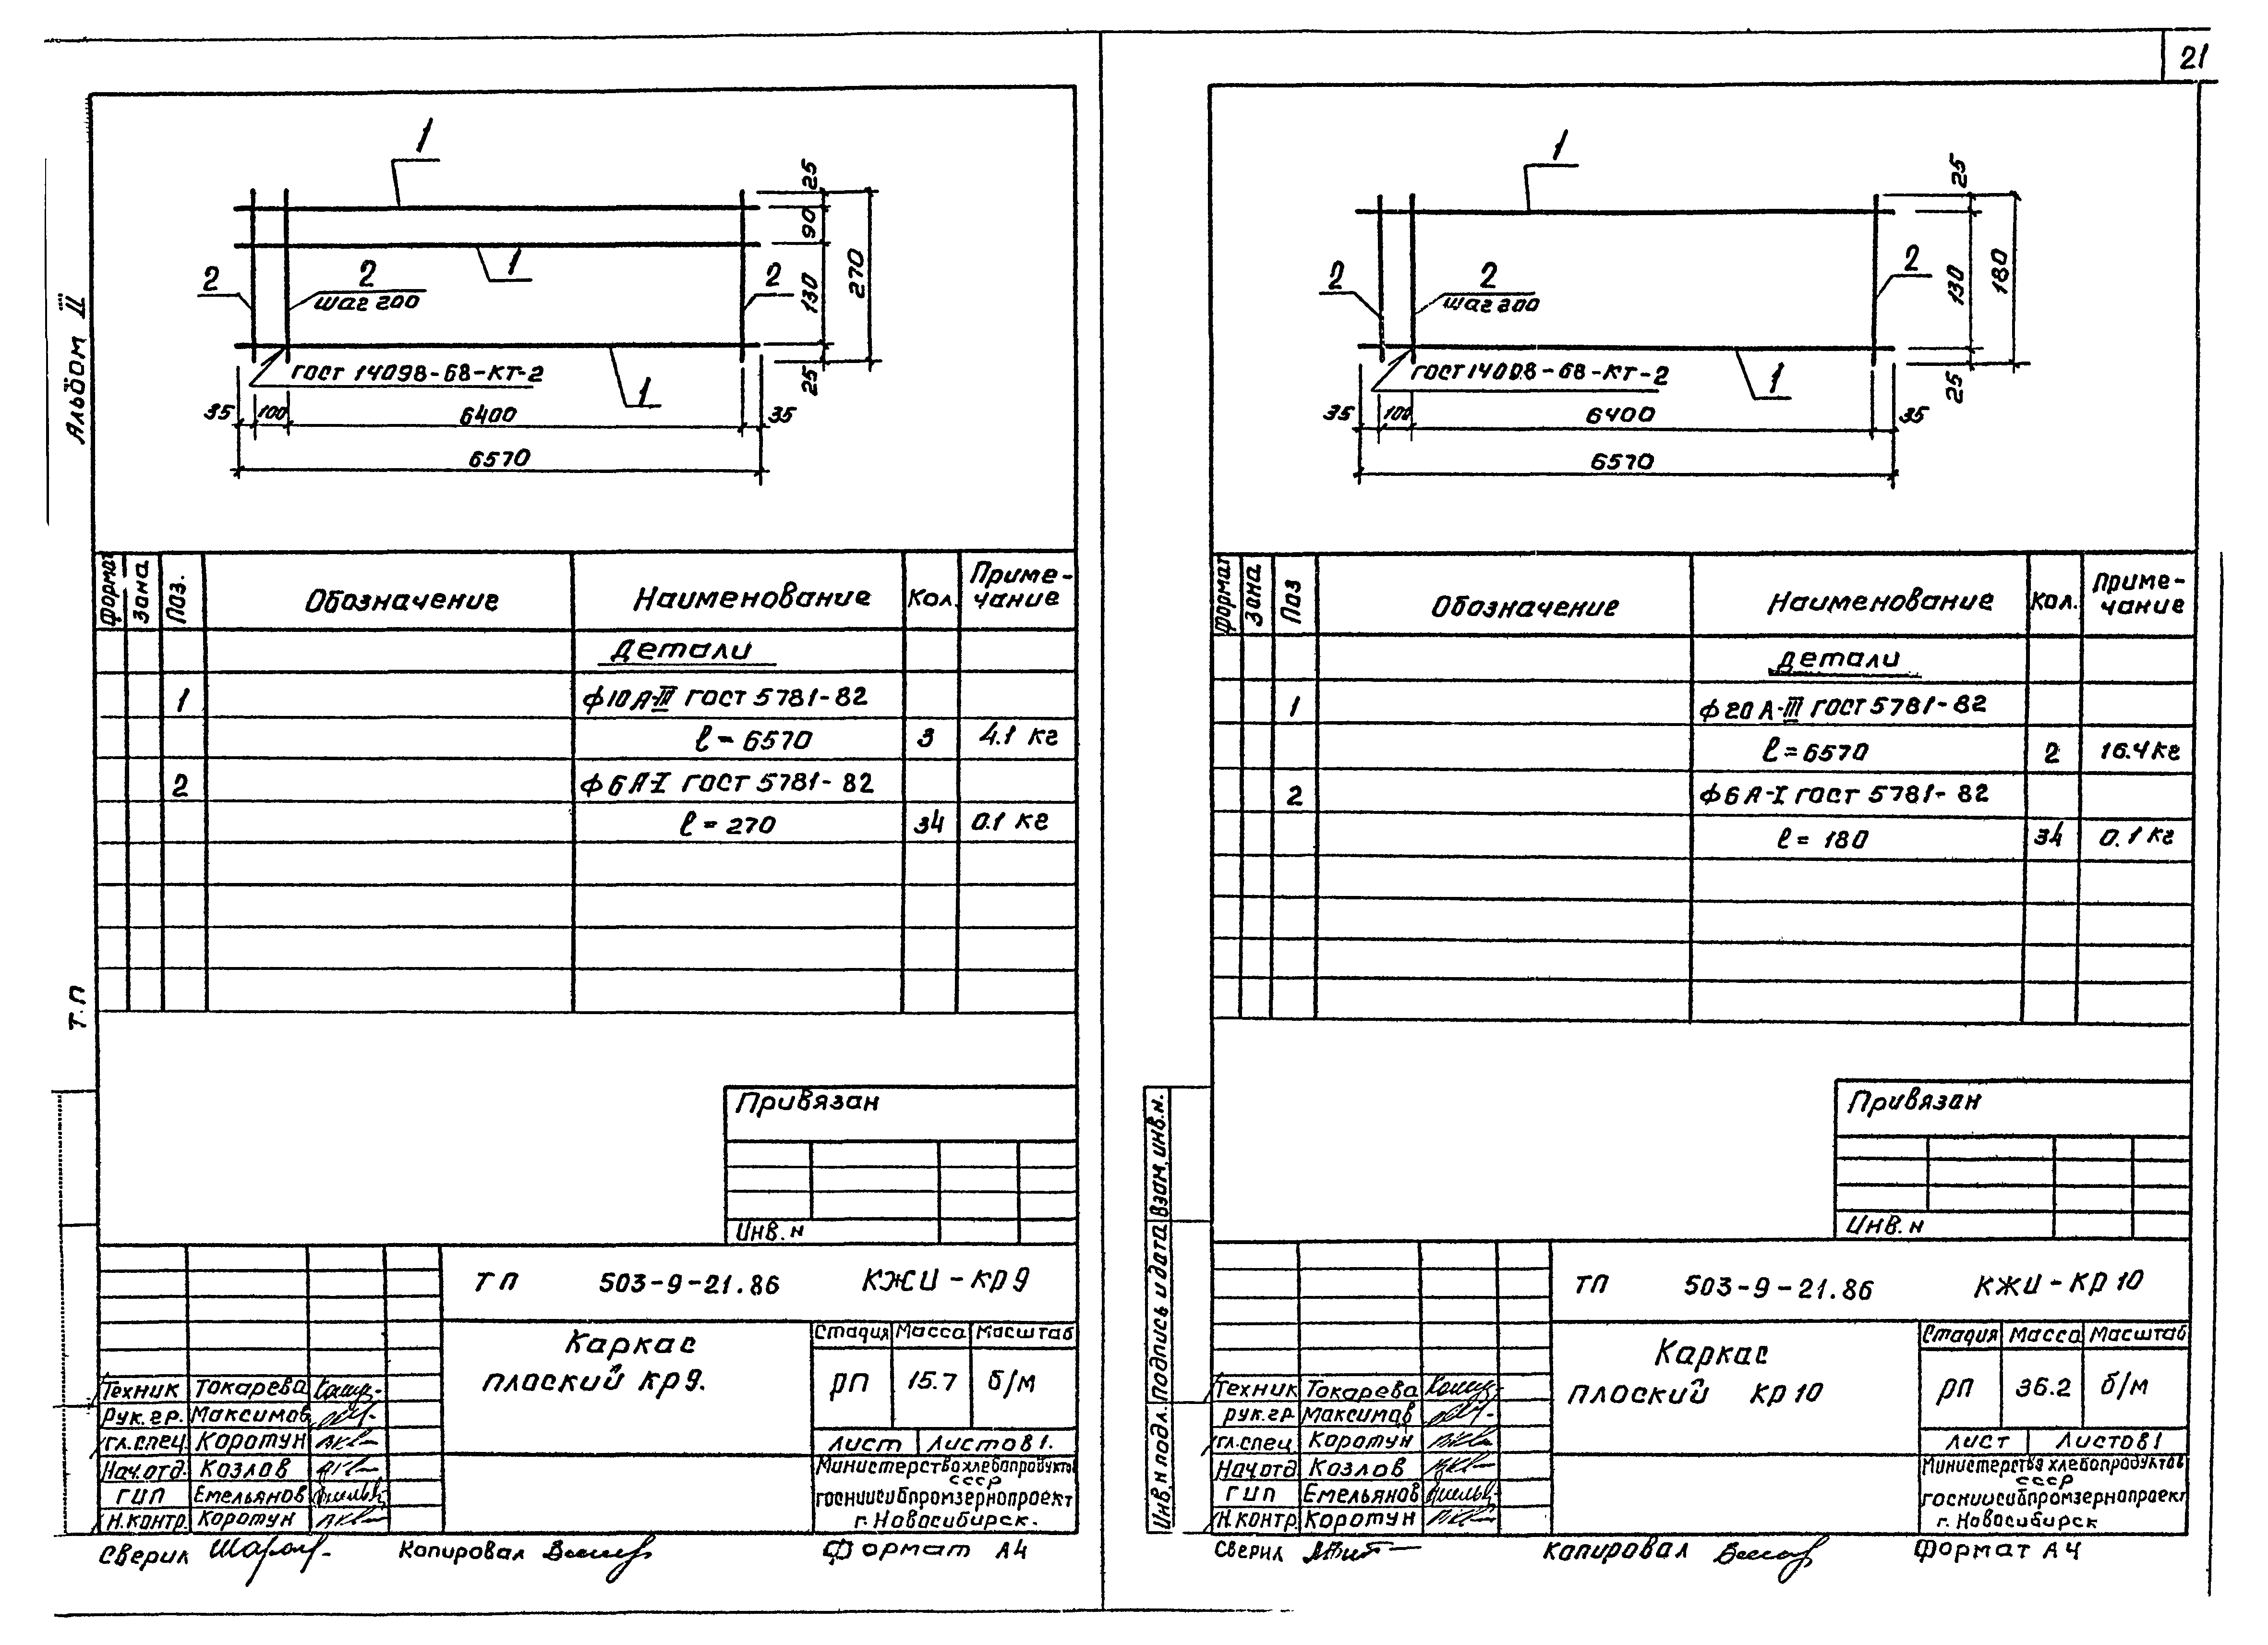 21
Альбом III
Т.П
1
1
2
2
шаг 200
2
1
ГОСТ 14098-68-КТ-2
35
100
6400
35
6570
25
90
130
25
270
формат
Зона
Поз.
Обозначение
Наименование
Кол.
Приме-
чание
Детали
1
ф10 А-III ГОСТ 5781-82
ℓ=6570
3
4.1 кг
2
ф6 А-I ГОСТ 5781-82
ℓ=270
34
0.1 кг
Привязан
Инв.н
ТП 503-9-21.86 КЖИ-КР9
Каркас
плоский КР9.
Стадия Масса Масштаб
РП 15.7 б/м
Лист Листов 1.
Министерство хлебопродуктов
СССР
ГОСНИИСИБПРОМЗЕРНОПРОЕКТ
г. Новосибирск.
Техник Токарева
Рук.гр. Максимов
гл.спец. Коротун
Нач.отд. Козлов
ГИП Емельянов
Н.контр. Коротун
Сверил
Копировал
Формат А4
1
2
2
шаг 200
2
1
ГОСТ 14098-68-КТ-2
35
100
6400
35
6570
25
130
25
180
формат
Зона
Поз
Обозначение
Наименование
Кол.
Приме-
чание
детали
1
ф20 А-III ГОСТ 5781-82
ℓ=6570
2
16.4 кг
2
ф6 А-I ГОСТ 5781-82
ℓ=180
34
0.1 кг
Привязан
Инв.н
Взам.инв.н.
Подпись и дата
Инв.н подл.
ТП 503-9-21.86 КЖИ-КР10
Каркас
плоский КР10
Стадия Масса Масштаб
РП 36.2 б/м
Лист Листов 1
Министерства хлебопродуктов
СССР
ГОСНИИСИБПРОМЗЕРНОПРОЕКТ
г. Новосибирск
Техник Токарева
рук.гр Максимов
гл.спец Коротун
Нач.отд Козлов
ГИП Емельянов
Н.контр Коротун
Сверил
Копировал
Формат А4